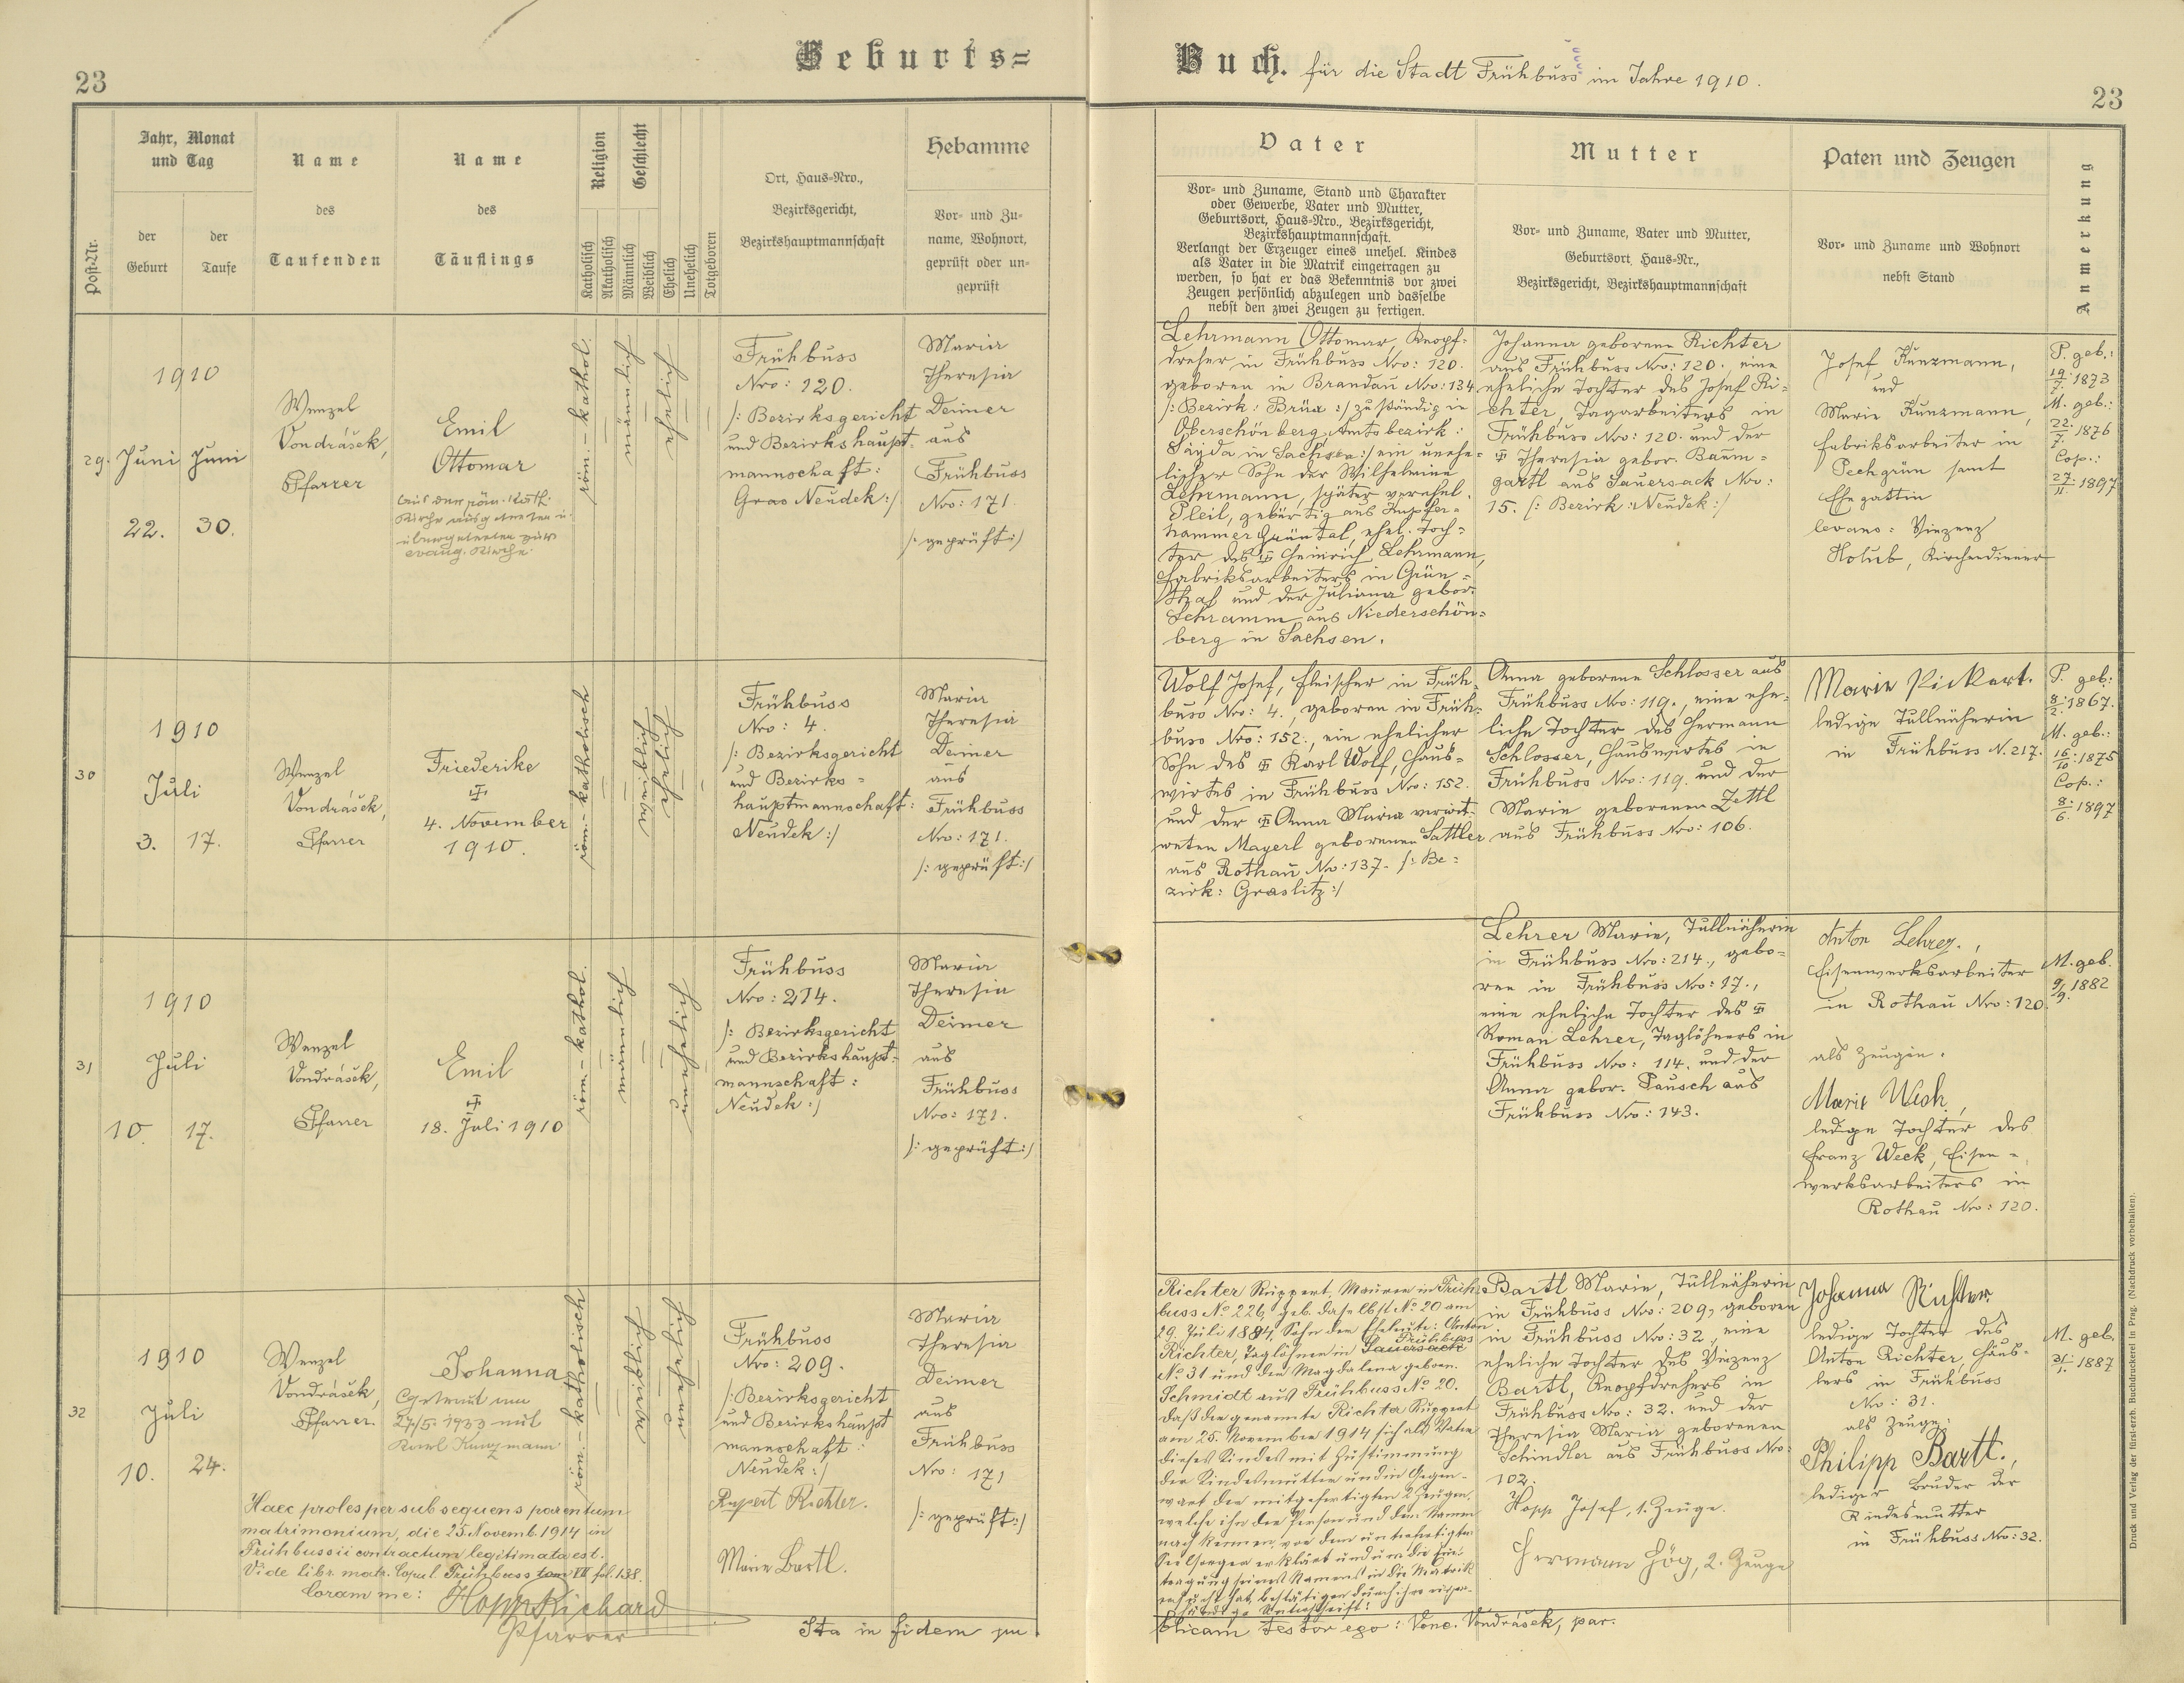 Geburts=
Buch. für die Stadt Frühbuss im Jahre 1910.
23
23
Post-Nr.
Jahr, Monat
und Tag
der
Geburt
der
Taufe
Name
des
Taufenden
Name
des
Täuflings
Religion
Katholisch
Akatholisch
Geschlecht
Männlich
Weiblich
Ehelich
Unehelich
Totgeboren
Ort, Haus=Nro.,
Bezirksgericht,
Bezirkshauptmannschaft
Hebamme
Vor= und Zu=
name, Wohnort,
geprüft oder un=
geprüft
Vater
Vor= und Zuname, Stand und Charakter
oder Gewerbe, Vater und Mutter,
Geburtsort, Haus=Nro., Bezirksgericht,
Bezirkshauptmannschaft.
Verlangt der Erzeuger eines unehel. Kindes
als Vater in die Matrik eingetragen zu
werden, so hat er das Bekenntnis vor zwei
Zeugen persönlich abzulegen und dasselbe
nebst den zwei Zeugen zu fertigen.
Mutter
Vor= und Zuname, Vater und Mutter,
Geburtsort, Haus=Nr.,
Bezirksgericht, Bezirkshauptmannschaft
Paten und Zeugen
Vor= und Zuname und Wohnort
nebst Stand
Anmerkung
29.
1910
Juni Juni
22. 30.
Wenzel
Vondrášek,
Pfarrer
Emil
Ottomar
Aus der röm. kath.
Kirche ausgetreten u.
übergetreten zur
evang. Kirche.
röm.-kathol.
männlich
ehelich
Frühbuss
Nro: 120.
/: Bezirksgericht
und Bezirkshaupt=
mannschaft:
Neudek :/
Maria
Theresia
Deimer
aus
Frühbuss
Nro: 171.
/: geprüft :/
Lehrmann Ottomar, Knopf=
dreher in Frühbuss Nro: 120.
geboren in Brandau Nro: 134
/: Bezirk: Brüx :/ zuständig in
Oberschönberg, Amtsbezirk:
Sayda in Sachsen :/ ein unehe=
licher Sohn der Wilhelmine
Lehrmann, später verehel.
Pleil, gebürtig aus Kupfer=
hammer Grüntal, ehel. Toch=
ter des Heinrich Lehrmann,
Fabriksarbeiters in Grün=
thal und der Juliana gebor.
Schramm aus Niederschön=
berg in Sachsen.
Johanna geborene Richter
aus Frühbuss Nro: 120., eine
eheliche Tochter des Josef Ri=
chter, Tagarbeiters in
Frühbuss Nro: 120. und der
Theresia gebor. Baum=
gartl aus Sauersack Nro:
15. /: Bezirk: Neudek :/
Josef Kunzmann,
und
Marie Kunzmann,
Fabriksarbeiter in
Pechgrün samt
Ehegattin
levans: Vinzenz
Holub, Kirchendiener
P. geb.:
19./7. 1873
M. geb.:
22./7. 1876
Cop.:
27./11. 1897
30
1910
Juli
3. 17.
Wenzel
Vondrášek,
Pfarrer
Friederike
4. November
1910.
röm.-katholisch
weiblich
ehelich
Frühbuss
Nro: 4.
/: Bezirksgericht
und Bezirks=
hauptmannschaft:
Neudek :/
Maria
Theresia
Deimer
aus
Frühbuss
Nro: 171.
/: geprüft :/
Wolf Josef, Fleischer in Früh=
buss Nro: 4., geboren in Früh=
buss Nro: 152., ein ehelicher
Sohn des Karl Wolf, Haus=
wirtes in Frühbuss Nro: 152.
und der Anna Maria verwit=
weten Mayerl geborenen Sattler
aus Rothau Nro: 137. /: Be=
zirk: Graslitz :/
Anna geborene Schlosser aus
Frühbuss Nro: 119., eine ehe=
liche Tochter des Hermann
Schlosser, Hauswirtes in
Frühbuss Nro: 119. und der
Marie geborenen Zettl
aus Frühbuss Nro: 106.
Marie Pickert.
ledige Tüllnäherin
in Frühbuss N. 217.
P. geb.:
8./2. 1867.
M. geb.:
16./10. 1875
Cop.:
8./6. 1897
31
1910
Juli
10. 17.
Wenzel
Vondrášek,
Pfarrer
Emil
18. Juli 1910
röm.-kathol.
männlich
unehelich
Frühbuss
Nro: 214.
/: Bezirksgericht
und Bezirkshaupt=
mannschaft:
Neudek :/
Maria
Theresia
Deimer
aus
Frühbuss
Nro: 171.
/: geprüft :/
Lehrer Marie, Tüllnäherin
in Frühbuss Nro: 214., gebo=
ren in Frühbuss Nro: 17.,
eine eheliche Tochter des
Roman Lehrer, Taglöhners in
Frühbuss Nro: 114. und der
Anna gebor. Pausch aus
Frühbuss Nro: 143.
Anton Lehrer.,
Eisenwerksarbeiter
in Rothau Nro: 120.
als Zeugin.
Marie Weck,
ledige Tochter des
Franz Weck, Eisen=
werksarbeiters in
Rothau Nro: 120.
M. geb.
9/9. 1882
32
1910
Juli
10. 24.
Wenzel
Vondrášek,
Pfarrer
Johanna
Getraut am
27./5. 1933 mit
Karl Kunzmann
röm.-katholisch
weiblich
unehelich
Frühbuss
Nro: 209.
/: Bezirksgericht
und Bezirkshaupt
mannschaft:
Neudek :/
Rupert Richter.
Marie Bartl.
Maria
Theresia
Deimer
aus
Frühbuss
Nro: 171
/: geprüft :/
Haec proles per subsequens parentum
matrimonium, die 25. Novemb. 1914 in
Frühbussii contractum legitimata est.
Vide libr. matr. Copul Frühbuss tom VII fol. 138.
Coram me: Hopp Richard
Pfarrer
Richter Ruppert, Maurer in Früh
buss No 226, geb. daselbst No 20 am
29. Juli 1884, Sohn der Eheleute: Anton
Frühbuss
Richter, Taglöhner in Sauersack
No 31 und der Magdalena geboren.
Schmidt aus Frühbuss No 20.
Daß der genannte Richter Ruppert
am 25. November 1914 sich als Vater
dieses Kindes mit Zustimmung
der Kindesmutter und in Gegen=
wart der mitgefertigten 2 Zeugen,
welche ihn der Person und dem Namen
nach kennen, vor dem unterfertigten
Seelsorger erklärt und um die Ein=
tragung seines Namens in die Matrik
ersucht hat, bestätigen durch ihre eigen=
händige Unterschrift:
Bartl Marie, Tüllnäherin
in Frühbuss Nro: 209, geboren
in Frühbuss Nro: 32., eine
eheliche Tochter des Vinzenz
Bartl, Knopfdrehers in
Frühbuss Nro: 32. und der
Theresia Maria geborenen
Schindler aus Frühbuss Nro:
102.
Hopp Josef, 1. Zeuge.
Hermann Hög, 2. Zeuge
Johanna Richter
ledige Tochter des
Anton Richter, Häus=
lers in Frühbuss
No: 31.
als Zeuge:
Philipp Bartl.,
lediger Bruder der
Kindesmutter
in Frühbuss Nro: 32.
M. geb.
31/1. 1887
Ita in fidem pu
blicam testor ego: Venc. Vondrášek, par.
Druck und Verlag der fürst-erzb. Buchdruckerei in Prag. (Nachdruck vorbehalten).